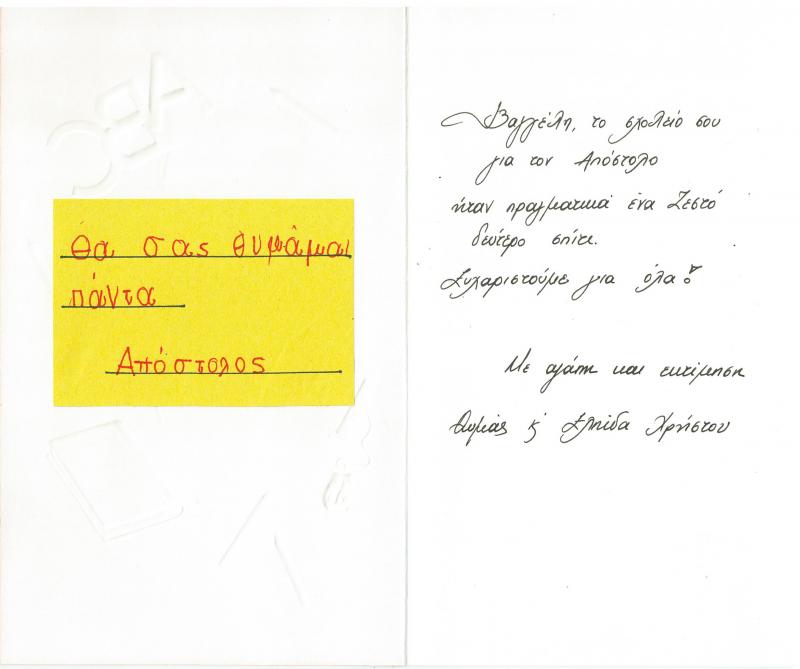 ABC
Θα σας θυμάμαι
πάντα
Απόστολος
Βαγγέλη, το σχολείο σου
για τον Απόστολο
ήταν πραγματικά ένα ζεστό
δεύτερο σπίτι.
Ευχαριστούμε για όλα!
Με αγάπη και εκτίμηση
Θωμάς κ' Ελπίδα Χρήστου